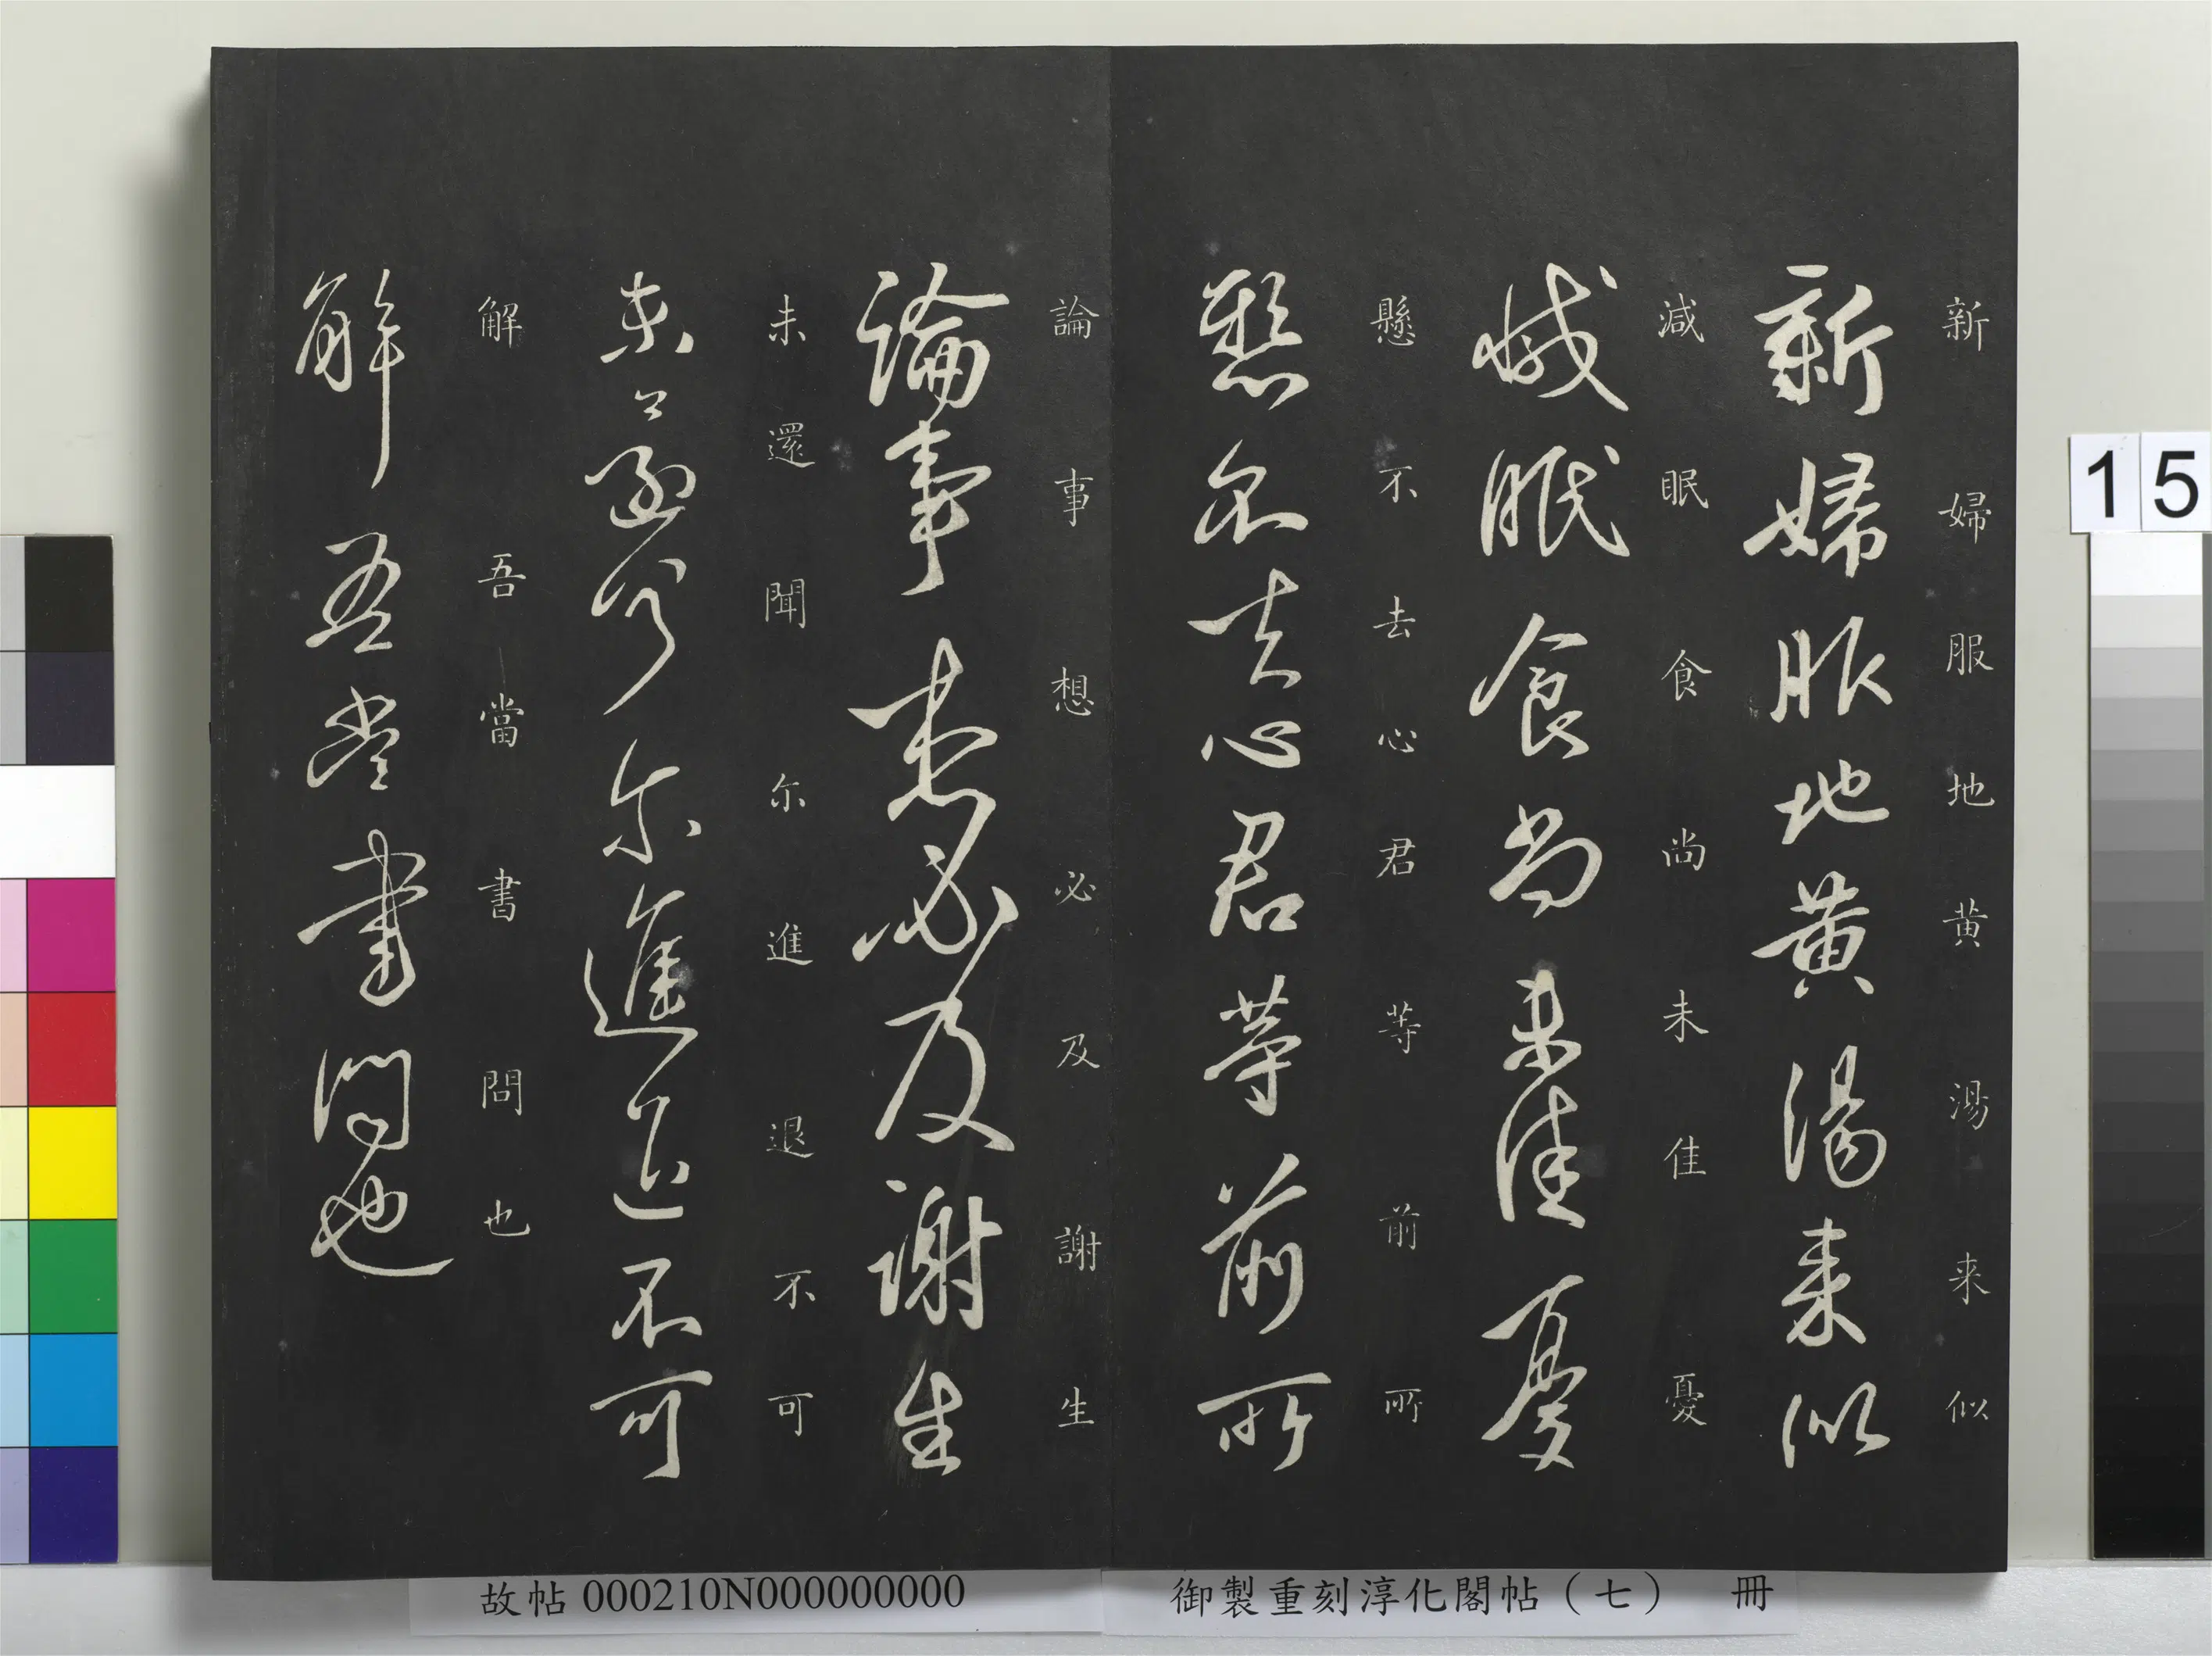 新婦服地黄湯来似
新婦服地黄湯来似
減眠食尚未佳憂
減眠食尚未佳憂
懸不去心君等前所
懸不去心君等前所
論事想必及謝生
論事想必及謝生
未還聞尔進退不可
未還聞尔進退不可
解吾當書問也
解吾當書問也
15
御製重刻淳化閣帖（七） 冊
故帖000210N000000000